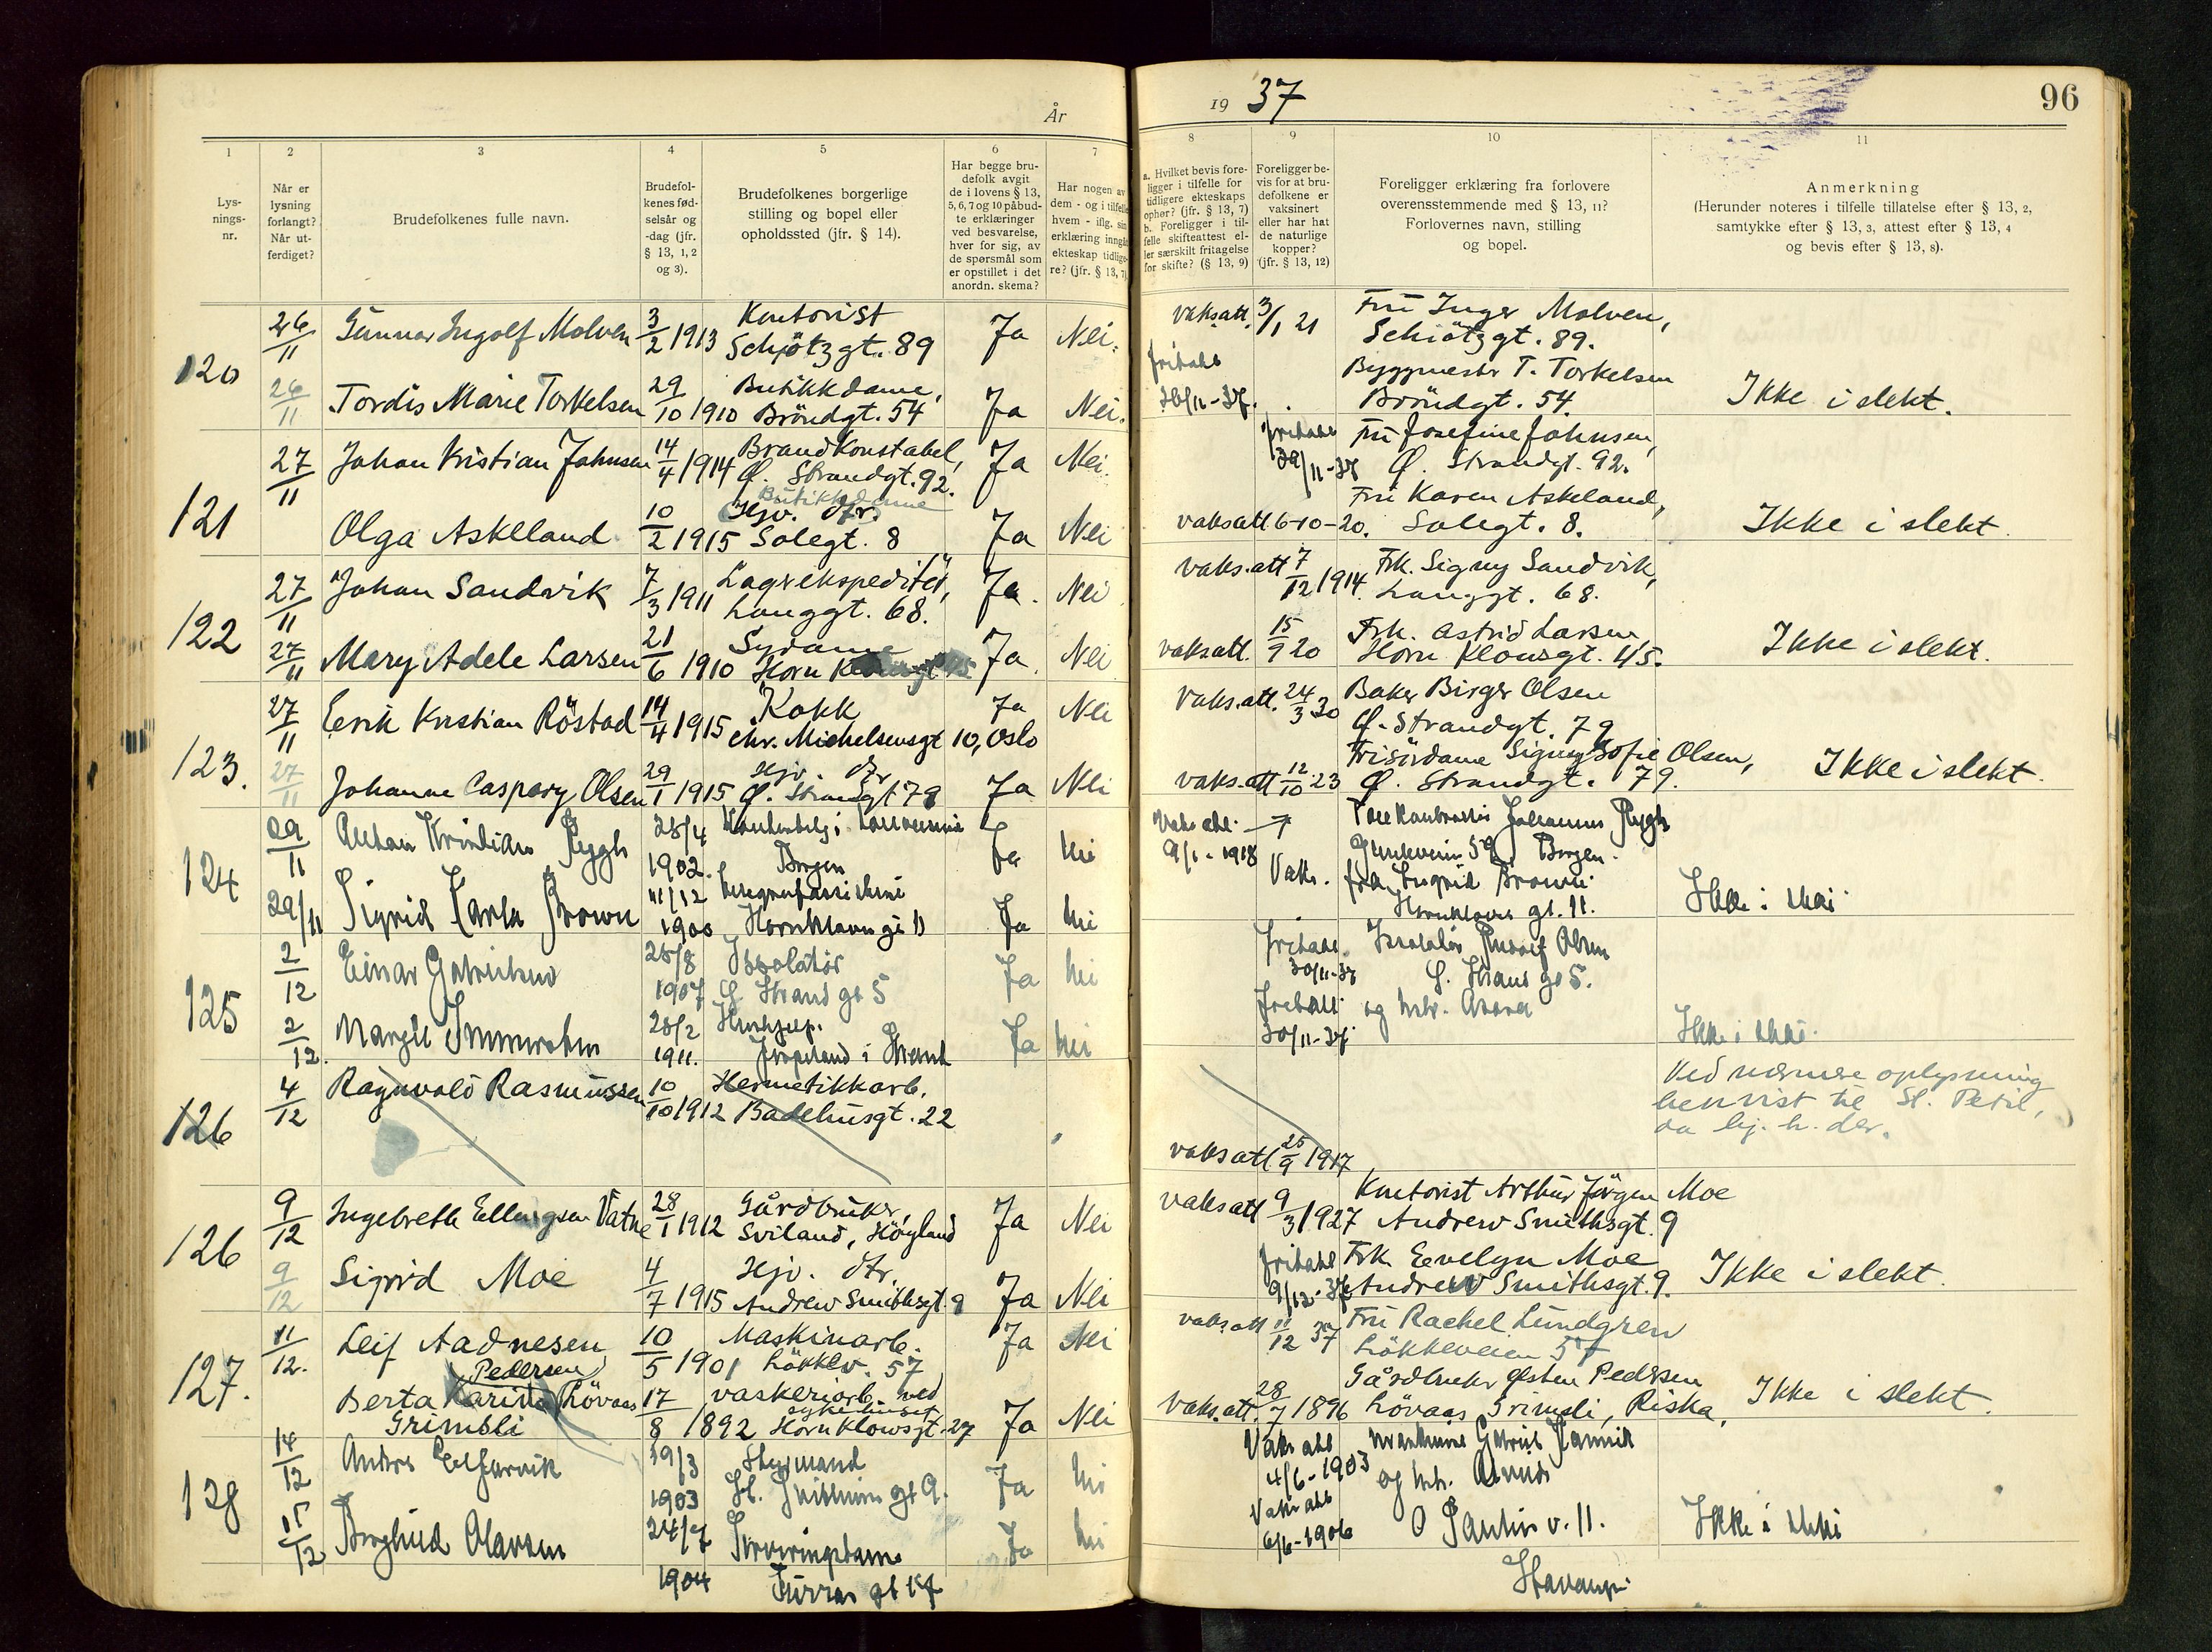 År
19 37
96
1
2
3
4
5
6
7
8
9
10
11
Lys-
nings-
nr.
Når er
lysning
forlangt?
Når ut-
ferdiget?
Brudefolkenes fulle navn.
Brudefol-
kenes fød-
selsår og
-dag (jfr.
§ 13, 1, 2
og 3).
Brudefolkenes borgerlige
stilling og bopel eller
opholdssted (jfr. § 14).
Har begge bru-
defolk avgit
de i lovens § 13,
5, 6, 7 og 10 påbud-
te erklæringer
ved besvarelse,
hver for sig, av
de spørsmål som
er opstillet i det
anordn. skema?
Har nogen av
dem - og i tilfelle
hvem - iflg. sin
erklæring inngått
ekteskap tidlige-
re? (jfr. § 13, 7)
a. Hvilket bevis fore-
ligger i tilfelle for
tidligere ekteskaps
ophør? (jfr. § 13, 7)
b. Foreligger i til-
felle skifteattest el-
ler særskilt fritagelse
for skifte? (§ 13, 9)
Foreligger be-
vis for at bru-
defolkene er
vaksinert
eller har hat
de naturlige
kopper?
(jfr. § 13, 12)
Foreligger erklæring fra forlovere
overensstemmende med § 13, 11?
Forlovernes navn, stilling
og bopel.
Anmerkning
(Herunder noteres i tilfelle tillatelse efter § 13, 2,
samtykke efter § 13, 3, attest efter § 13, 4
og bevis efter § 13, 8).
120
26/11 Gunnar Ingolf Molven 3/2 1913 Kontorist
Schjötzgt. 89 Ja Nei. vaks.att. 3/1 21 Fru Inger Molven,
Schiötzgt. 89.
26/11 Tordis Marie Torkelsen 29/10 1910 Butikkdame,
Bröndgt. 54 Ja Nei. Byggmester T. Torkelsen
Bröndgt. 54. Ikke i slekt.
121
27/11 Johan Kristian Johnsen 14/4 1914 Brandkonstabel,
Ø. Strandgt. 92. Ja Nei. Fru Josefine Johnsen,
Ø. Strandgt. 92.
Butikkdame
Olga Askeland 10/2 1915 Hjv. dtr.
Solegt. 8 Ja Nei vaksatt 6-10-20. Fru Karen Askeland,
Solegt. 8. Ikke i slekt.
122
27/11 Johan Sandvik 7/3 1911 Lagerekspeditör,
Langgt. 68. Ja. Nei vaks.att 7/12 1914. Frk. Signy Sandvik,
Langgt. 68.
27/11 Mary Adele Larsen 21/6 1910 Sydame
Horn Ja. Nei vaksatt. 15/9 20 Frk. Astrid Larsen,
Horn Klowsgt. 45. Ikke i slekt.
123.
27/11 Eerik Kristian Röstad 14/4 1915 Kokk
Chr. Michelsensgt 10, Oslo Ja Nei vaks.att. 24/3 30 Baker Birger Olsen
Ø. Strandgt. 79
27/11 Johanne Caspary Olsen 29/1 1915 Hjv. dtr
Ø. Strandgt 79 Ja Nei vaks.att 12/10 23 Frisördame Signy Sofie Olsen,
Ø. Strandgt. 79. Ikke i slekt.
124
29/11 Kristian Rygh 28/4
1902. Bergen Ja Nei
9/1-1918 Johannes Rygh
59 Bergen.
29/11 Sigrid Carla Brown 11/12
1900 Hornklows gt 11 Ja Nei Vaks. fra Ingrid Brown
Hornklows gt. 11.
125
2/12 Einar Gabrielsen 28/8
1907 Isolatör
Strand gt 5 Ja Nei 30/11-37 Isolatör Olsen
Strand gt 5.
2/12. Margit 28/2
1911. Hushjelp.
i Strand Ja Nei 30/11-37
126
4/12 Ragnvald Rasmussen 10/10 1912 Hermetikkarb.
Badehusgt. 22 vaksatt. 25/9 1917
Ved nærmere oplysning
henvist til St. Petri,
da hj. h. der.
126
9/12 Ingebreth Ellingsen Vatne 28/1 1912 Gårdbruker,
Sviland, Höyland Ja Nei vaksatt 9/3 1927 Kontorist Arthur Jörgen Moe
Andrew Smithsgt. 9
9/12 Sigrid Moe 4/7 1915 Hjv. dtr,
Andrew Smithsgt. 9 Ja Nei 9/12-37 Frk. Eevelyn Moe
Andrew Smithsgt. 9. Ikke i slekt.
127.
11/12. Leif Aadnesen 10/5 1901 Maskinarb.
Lökkev. 57 Ja Nei vaks.att 11/12 37 Fru Rachel Lundgren
Lökkeveien 57
Pedersen
Berta Karina Lövaas
Grimsli 17/8 1892 vaskeriarb. ved
sykehuset
Horn Klowsgt. 27 Ja Nei vaks.att. 28/7 1896 Gårdbruker Østen Pedersen
Lövaas Grimsli, Riska, Ikke i slekt.
128
14/12 Anders 19/3
1903 Styrmand
gt 9. Ja 4/6-1903
15/12 Borghild Olavsen 24/7
1904 Serveringsdame
gt 17 Ja 6/6-1906 v. 11.